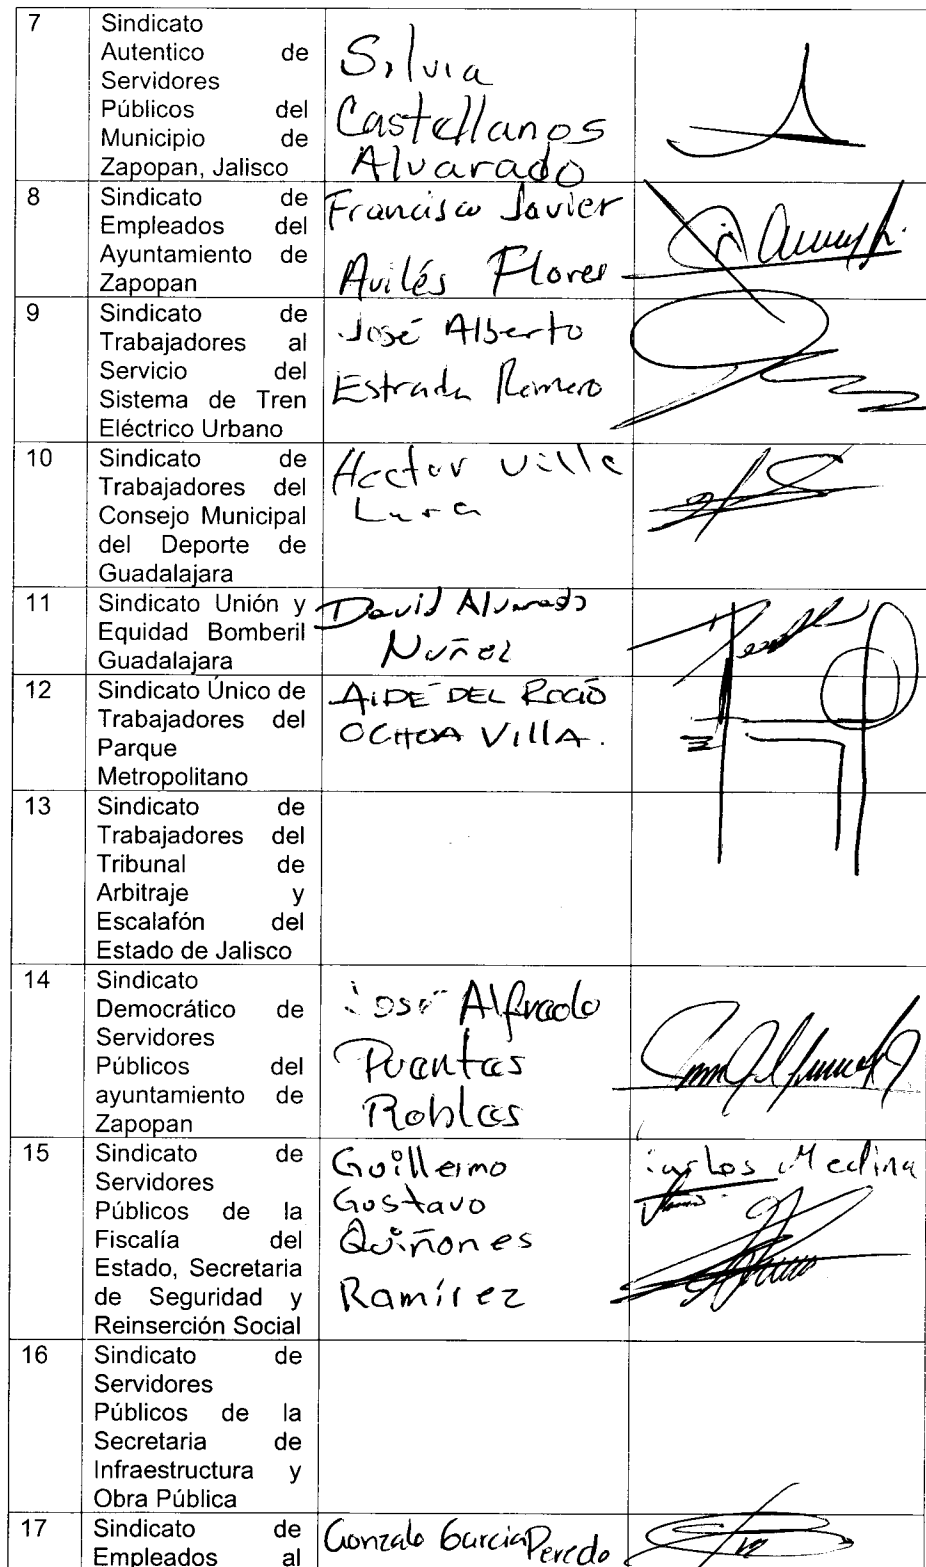 7
Sindicato
Autentico de
Servidores
Públicos del
Municipio de
Zapopan, Jalisco
Silvia
Castellanos
Alvarado
8
Sindicato de
Empleados del
Ayuntamiento de
Zapopan
Francisco Javier
Avilés Flores
9
Sindicato de
Trabajadores al
Servicio del
Sistema de Tren
Eléctrico Urbano
José Alberto
Estrada Romero
10
Sindicato de
Trabajadores del
Consejo Municipal
del Deporte de
Guadalajara
Hector Ville
11
Sindicato Unión y
Equidad Bomberil
Guadalajara
David Alvarado
Nuñez
12
Sindicato Único de
Trabajadores del
Parque
Metropolitano
AIDE DEL ROCIÓ
OCHOA VILLA.
13
Sindicato de
Trabajadores del
Tribunal de
Arbitraje y
Escalafón del
Estado de Jalisco
14
Sindicato
Democrático de
Servidores
Públicos del
ayuntamiento de
Zapopan
José Alfredo
Puentes
Robles
15
Sindicato de
Servidores
Públicos de la
Fiscalía del
Estado, Secretaria
de Seguridad y
Reinserción Social
Guillermo
Gustavo
Quiñones
Ramírez
Carlos Medina
16
Sindicato de
Servidores
Públicos de la
Secretaria de
Infraestructura y
Obra Pública
17
Sindicato de
Empleados al
Gonzalo Garcia Peredo